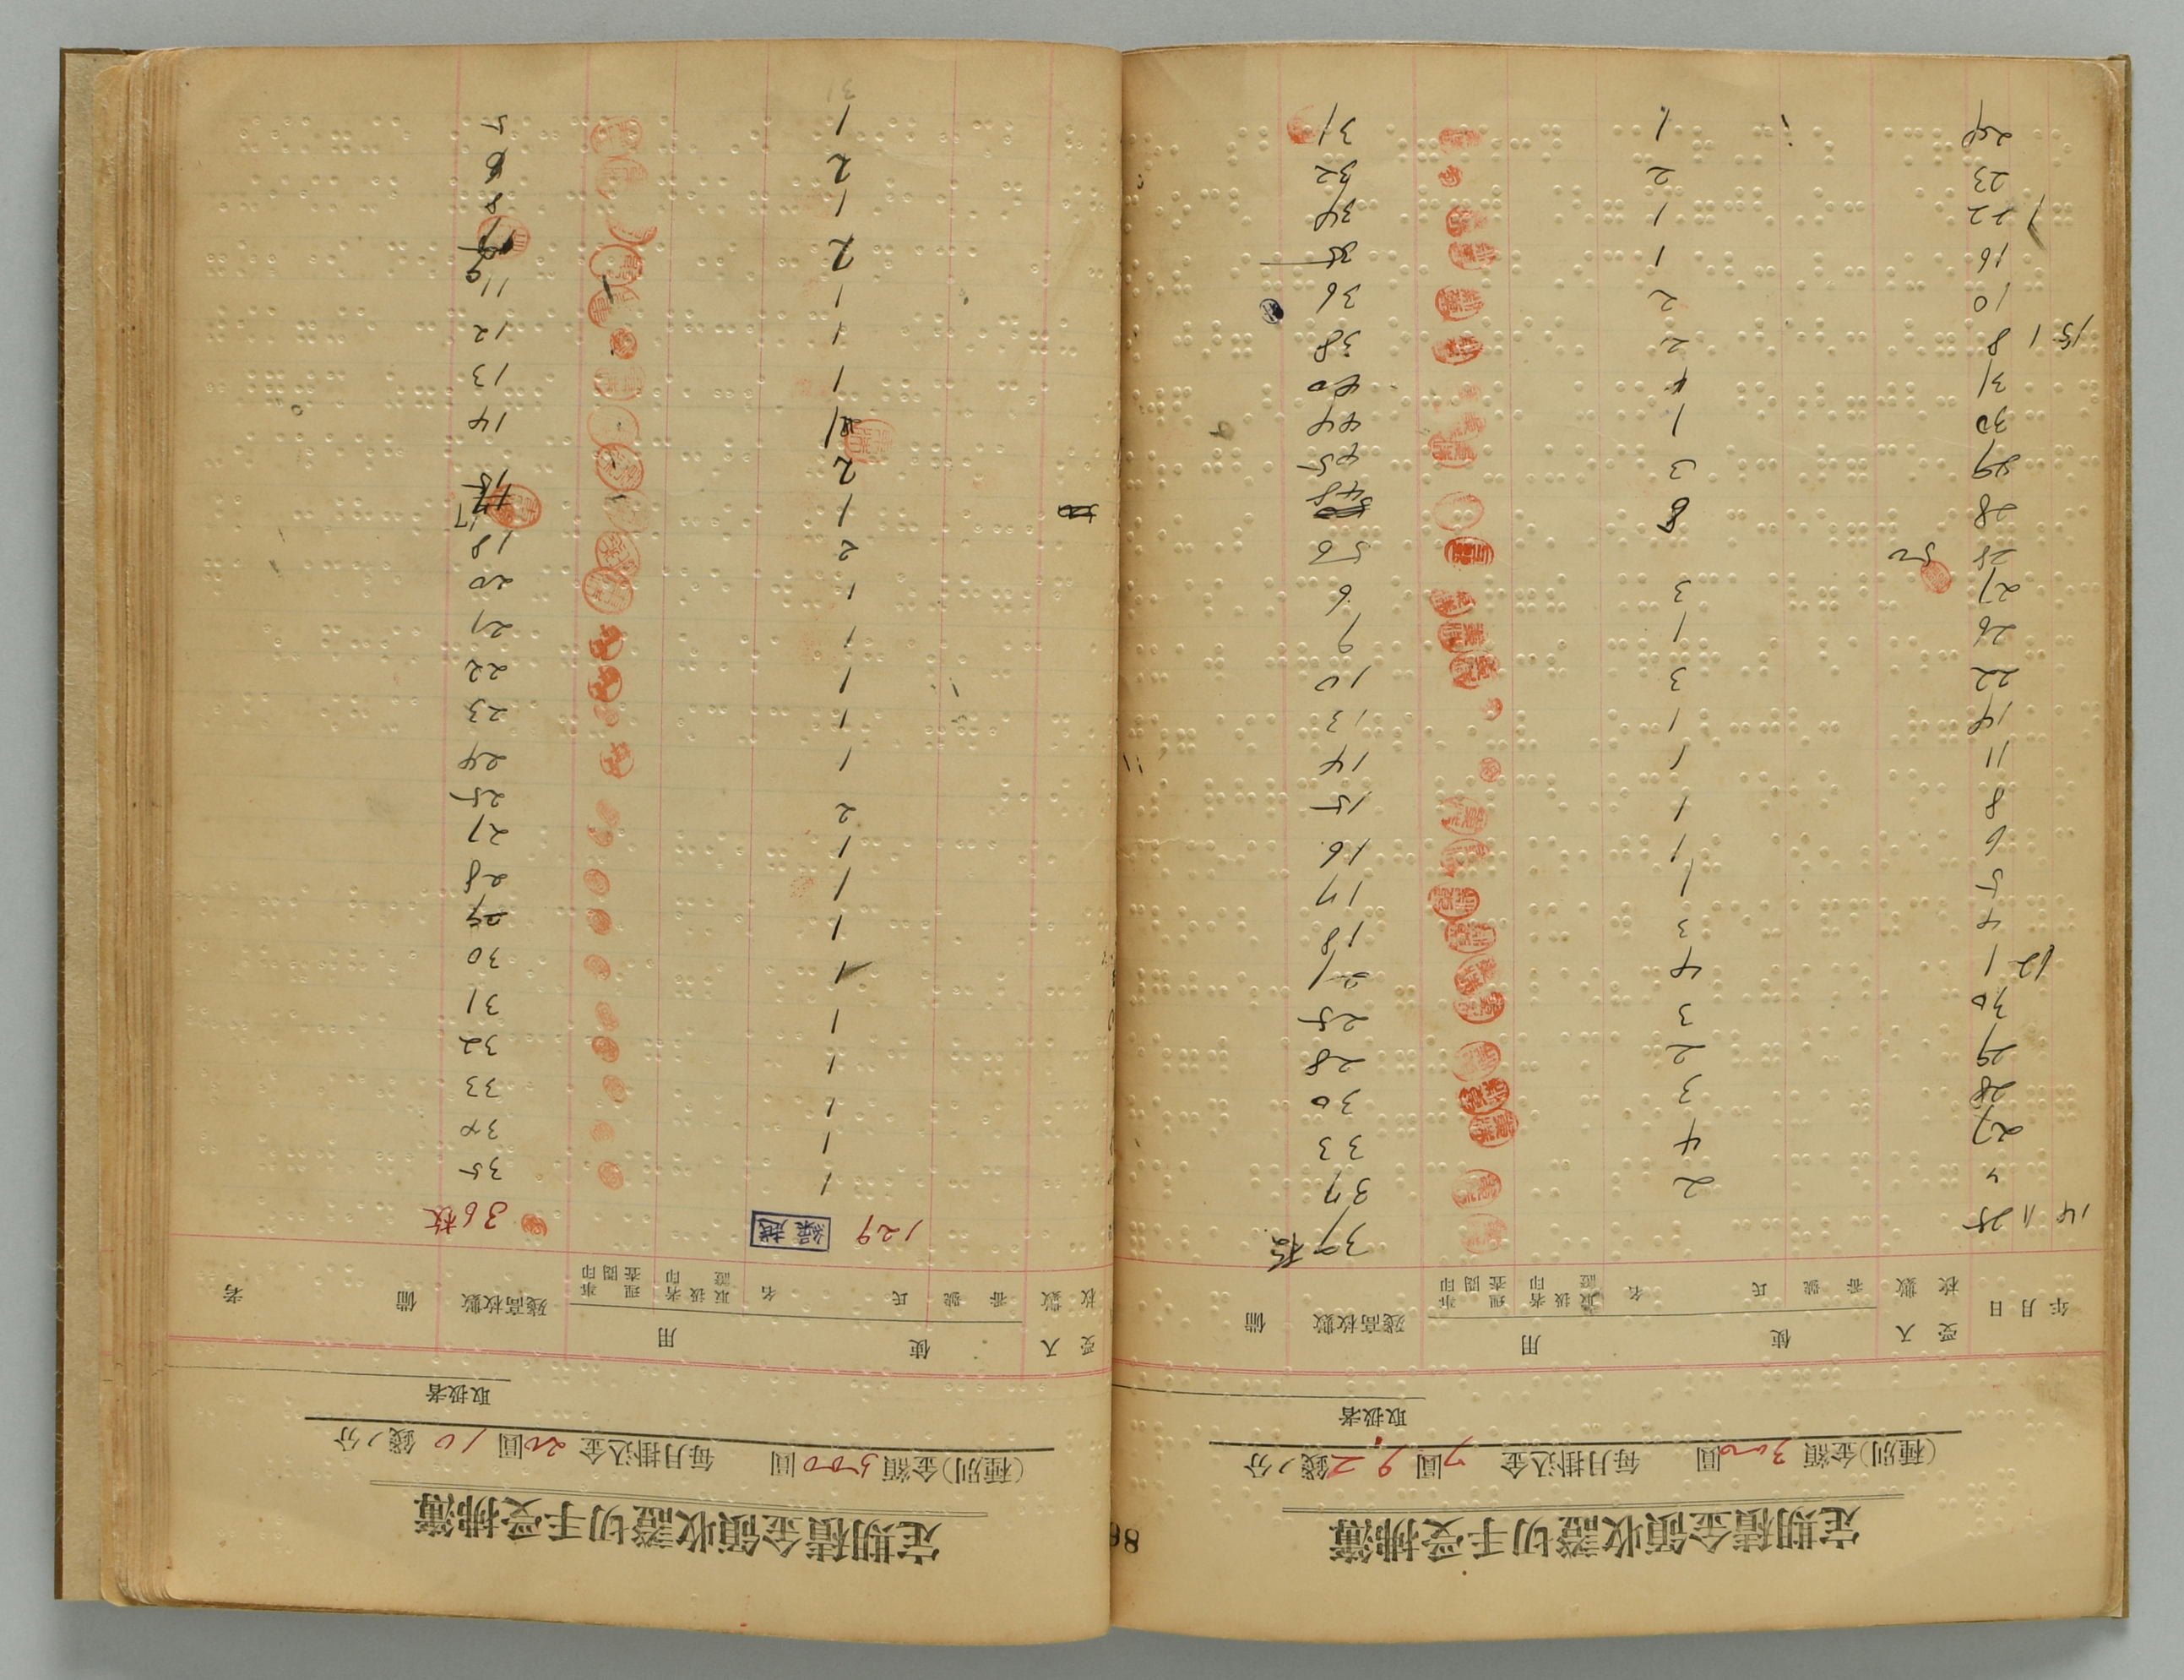 定期積金領收證切手受拂簿
(種別)金額 300圓 每月掛込金 7圓92錢ノ分
取扱者
年 月 日 受入枚數 使用 番號 氏名 取扱者認印 理事査閲印 殘高枚數 備
14 11 25 39枚
〃 2 37
27 4 33
28 3 30
29 2 28
30 3 25
12 1 4 21
4 3 18
5 1 17
6 1 16
8 1 15
11 1 14
14 1 13
22 3 10
26 1 9
27 3 6
28 50 56
28 8 48
29 3 45
30 1 44
31 4 40
15 1 8 2 38
10 2 36
16 1 35
22 1 34
23 2 32
24 1 31
定期積金領收證切手受拂簿
(種別)金額 500圓 每月掛込金 20圓10錢ノ分
取扱者
受入枚數 使用 番號 氏名 取扱者認印 理事査閲印 殘高枚數 備考
129 繰越 36枚
1 35
1 34
1 33
1 32
1 31
1 30
1 29
1 28
1 27
2 25
1 24
1 23
1 22
1 21
1 20
2 18
1 17
2 15
1 14
1 13
1 12
1 11
2 9
1 8
2 6
1 5
31